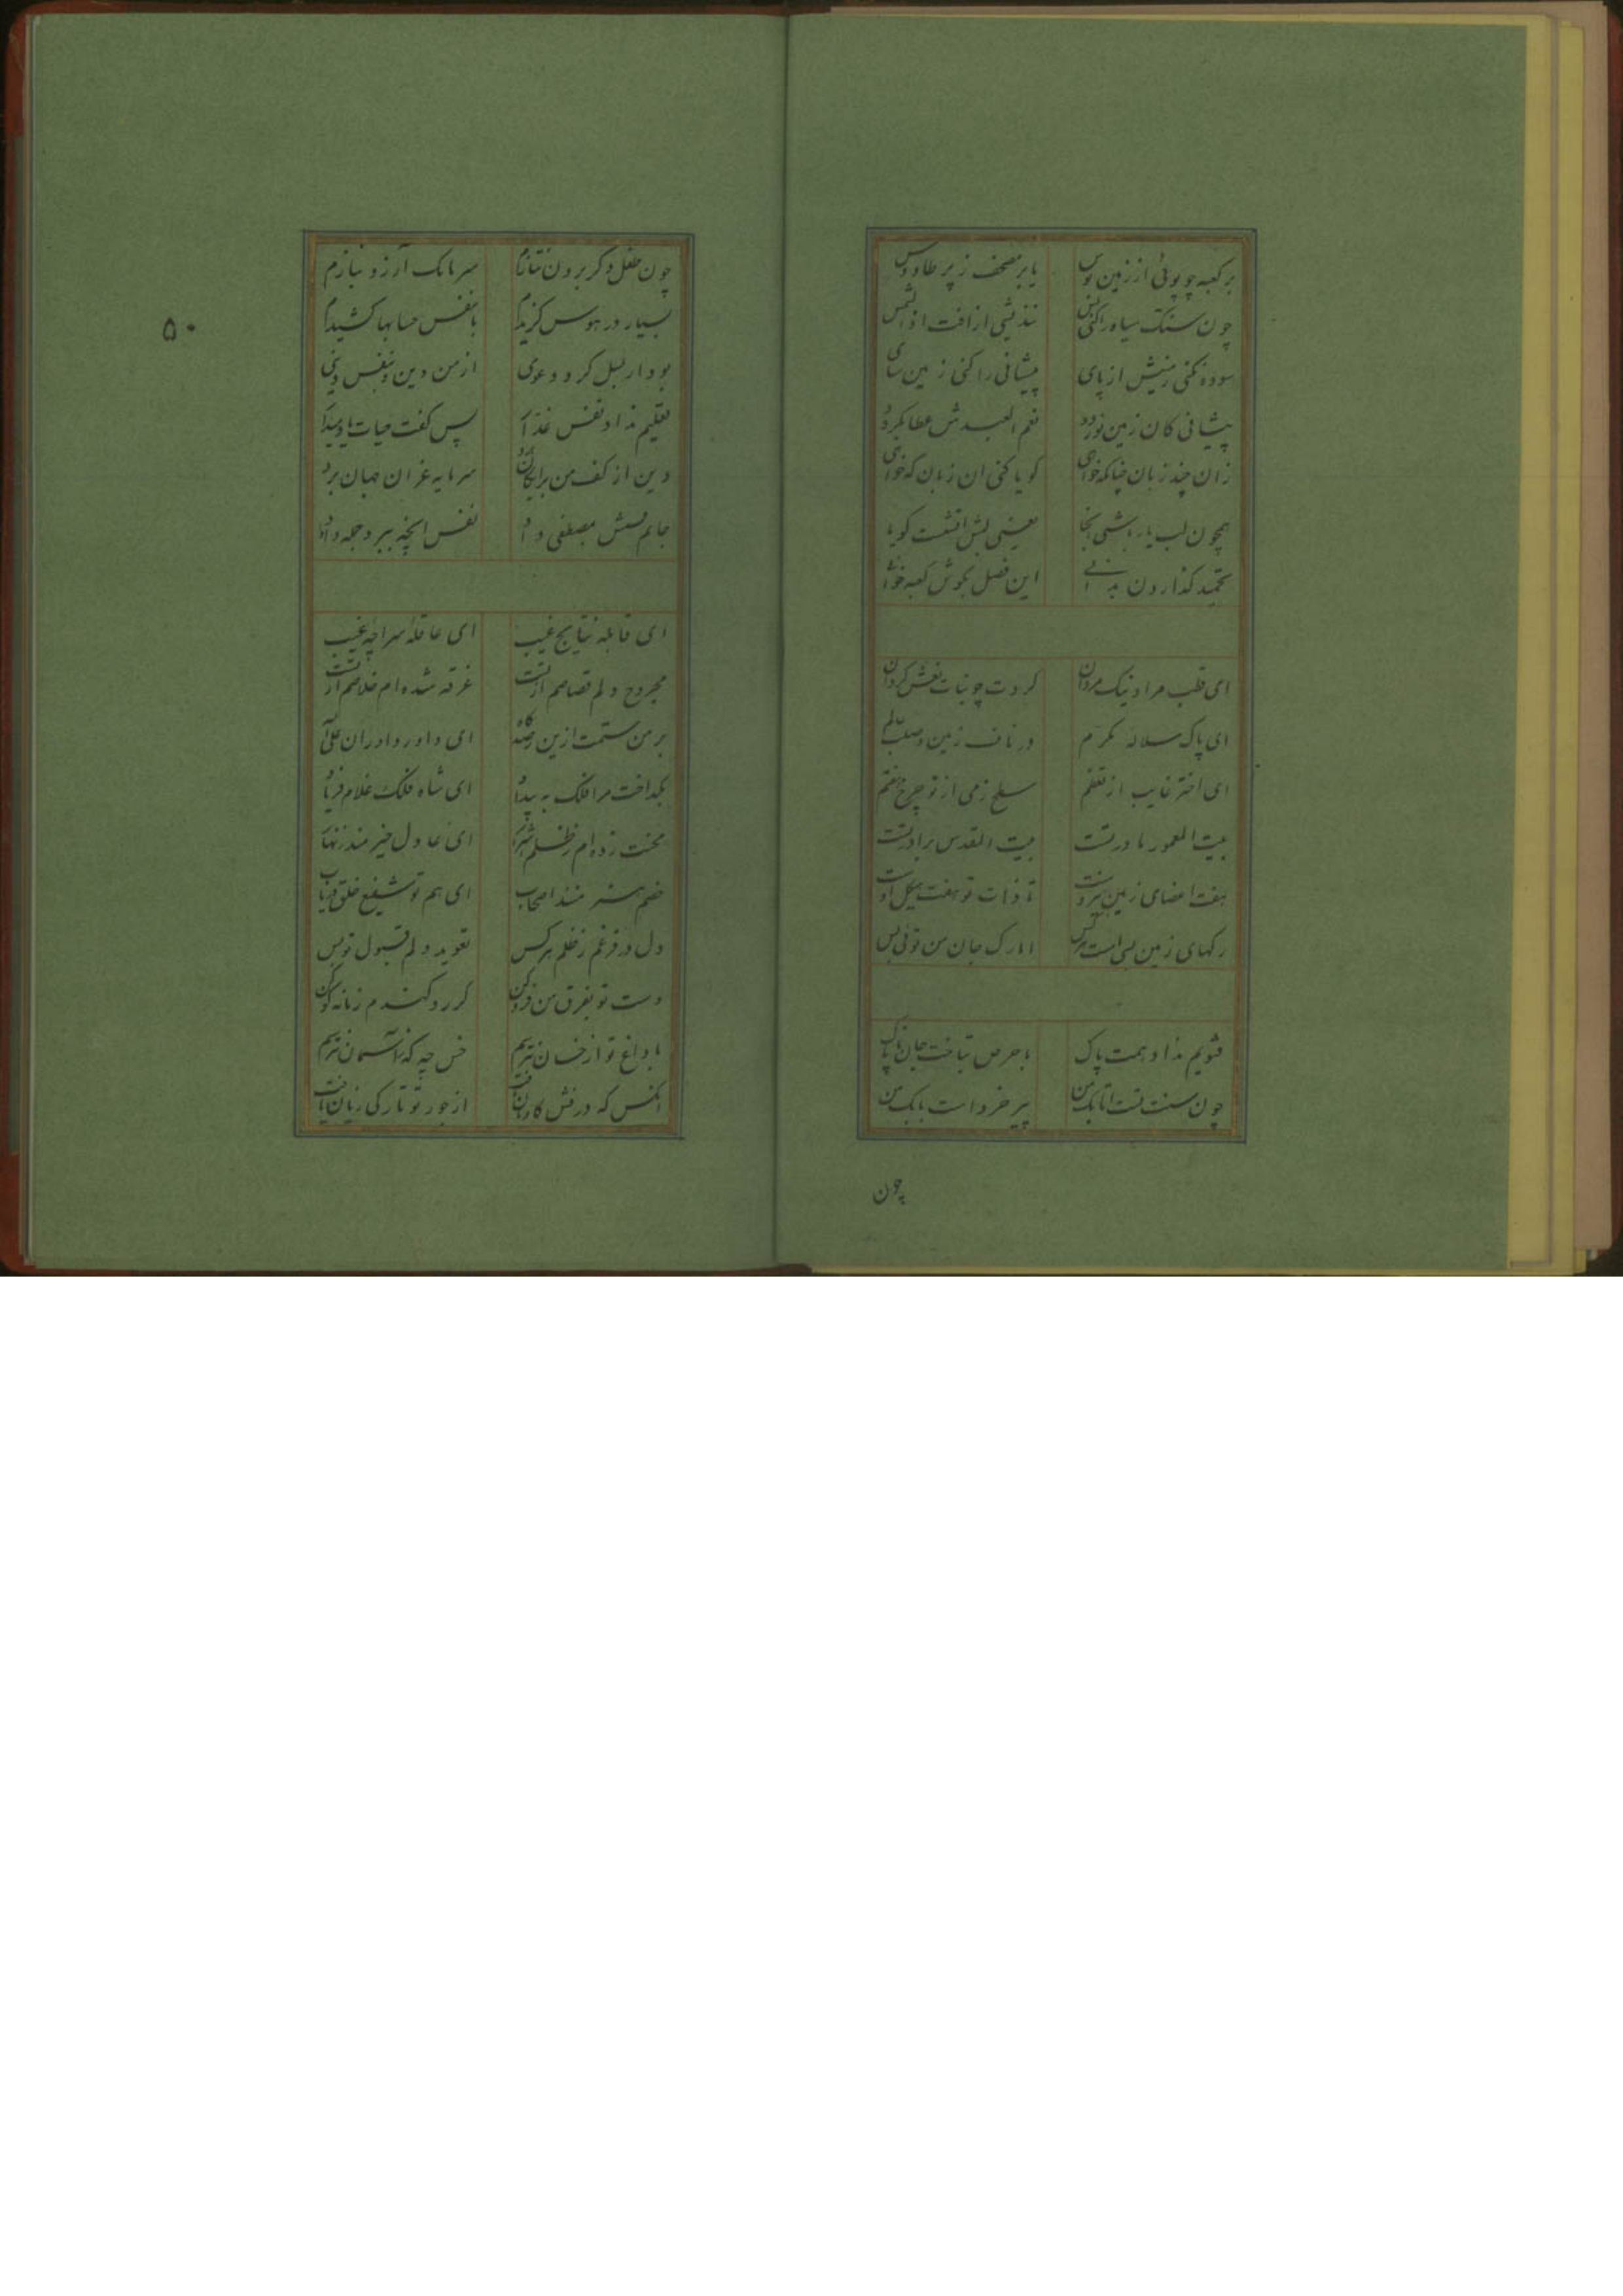 بر کعبه چو پوئی از زمین بوس یا بر مصحف ز پر طاوس
چون سنک سیاه را کنی لمس نندیشی از آفت اذ الشمس
سوده نکنی زمینش از پای پیشانی را کنی زمین سای
پیشانی کان زمین نوردد نعم العبدش عطا نکردد
زان چند زبان چنانکه خواهی کویا کنی ان زبان که خواهی
همچون لب یار باشی آنجا یعنی بش آتشت کویا
تحمید کذارون این فصل بکوش کعبه خوان
ای قطب مراد نیک مردان کردت چو بنات نعش کردان
ای پاک سلاله مکرم در ناف زمین و صلب عالم
ای اختر غایب از تعظم سطح زمی از تو چرخ هفتم
بیت المعمور مادر تست بیت المقدس برادر تست
هفت اعضای زمین تا ذات تو هفت هیکل اوست
رکهای زمین بسی است هر کس اما رک جان من توئی بس
فتویم نداد همت پاک با حرص نباخت جان پاک
چون سنت تست اتابک من پیر خرد است بابک من
چون
۵۰
چون طفل و کر برون نتازم سرمامک آرزو نبازم
بسیار در هوس کزیدم با نفس حسابها کشیدم
بودار لبیل کرد دعوی از من دین و ز نفس دنیی
تعلیم نداد نفس غدار پس کفت حیات
دین از کف من برایکان برد سرمایه عز آن جهان برد
جانم مصطفی داد نفس آنچه ببرد جمله وا داد
ای قابله نتایج غیب ای عاقله سراچه غیب
مجروح دلم قصاصم از تست غرقه شده ام خلاصم از تست
بر من ستمست ازین رصدکاه ای داور داوران علی الله
بکداخت مرا فلک به بیداد ای شاه فلک غلام فریاد
محنت زده ام ز ظلم ای عادل خیرمند زنهار
خصم هنر منند اصحاب ای هم تو شفیع خلق دریاب
دل در فزغم ز ظلم هر کس تعوید دلم قبول تو بس
دست تو بفرق من فرو کن کر رد کندم زمانه کو کن
با داغ تو از خسان نترسم خس چه که ز آسمان نترسم
آنکس که درفش کاویان یافت از جور تو تارکی زیان یافت